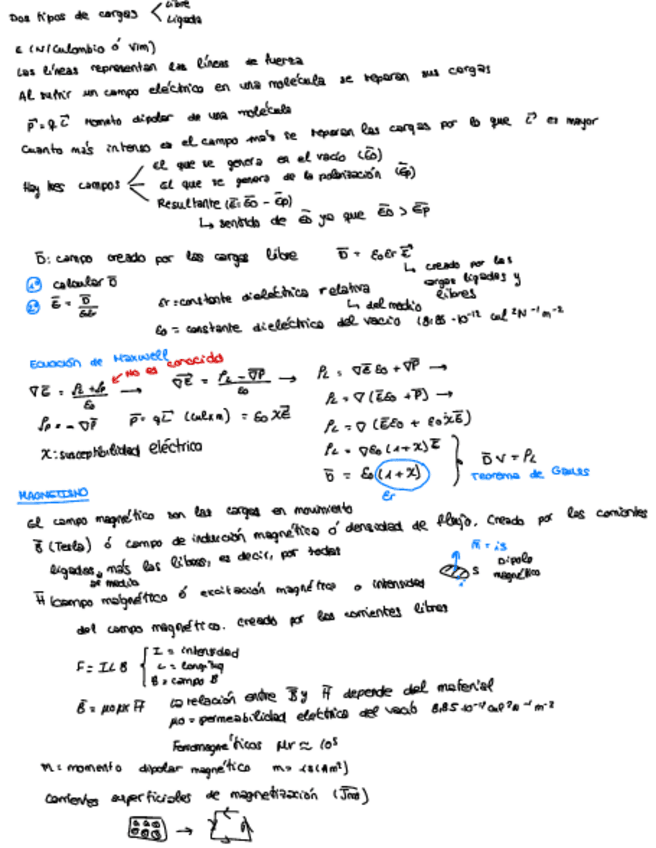 Dos tipos de cargas < Libre
Ligada
E (N/Culombio ó V/m)
Las líneas representan las líneas de fuerza
Al sufrir un campo eléctrico en una molécula se separan sus cargas
p⃗ = q L⃗ momento dipolar de una molécula
Cuanto más intenso es el campo más se separan las cargas por lo que L⃗ es mayor
Hay tres campos
El que se genera en el vacío (E̅o)
El que se genera de la polarización (E̅p)
Resultante (E̅ = E̅o - E̅p)
↳ sentido de E̅o ya que E̅o > E̅p
D̅: campo creado por las cargas libre D̅ = εoεr E⃗
↳ creado por las cargas ligadas y libres
1º calcular D̅
2º E̅ = D̅/εoεr
εr = constante dieléctrica relativa
↳ del medio
εo = constante dieléctrica del vacío (8.85·10⁻¹² cul²N⁻¹m⁻²
Ecuación de Maxwell
No es conocido
∇E̅ = ρL + ρp / εo → ∇E̅ = ρL - ∇P̅ / εo → ρL = ∇E̅εo + ∇P̅ →
ρL = ∇(E̅εo + P̅) →
ρp = - ∇P̅ P̅ = qL⃗ (cul×m) = εo χE̅
ρL = ∇(E̅εo + εoχE̅)
χ: susceptibilidad eléctrica
ρL = ∇εo(1+χ)E̅
D̅ = εo(1+χ)
εr
D̅∇ = ρL
Teorema de Gauss
MAGNETISMO
El campo magnético son las cargas en movimiento
B̅ (Tesla) ó campo de inducción magnética ó densidad de flujo. Creado por las corrientes
ligadas más las libres, es decir, por todas
m̅ = iS
S
i
Dipolo magnético
H̅ (campo magnético ó excitación magnética o intensidad
del campo magnético. Creado por las corrientes libres
F = ILB
I = intensidad
L = longitud
B = campo B
B̅ = μoμr H̅ La relación entre B̅ y H̅ depende del material
μo = permeabilidad eléctrica del vacío 8,85·10⁻¹² cul²N⁻¹m⁻²
Ferromagnéticos μr ≈ 10⁵
m = momento dipolar magnético m = iS (Am²)
Corrientes superficiales de magnetización (J̅ms)